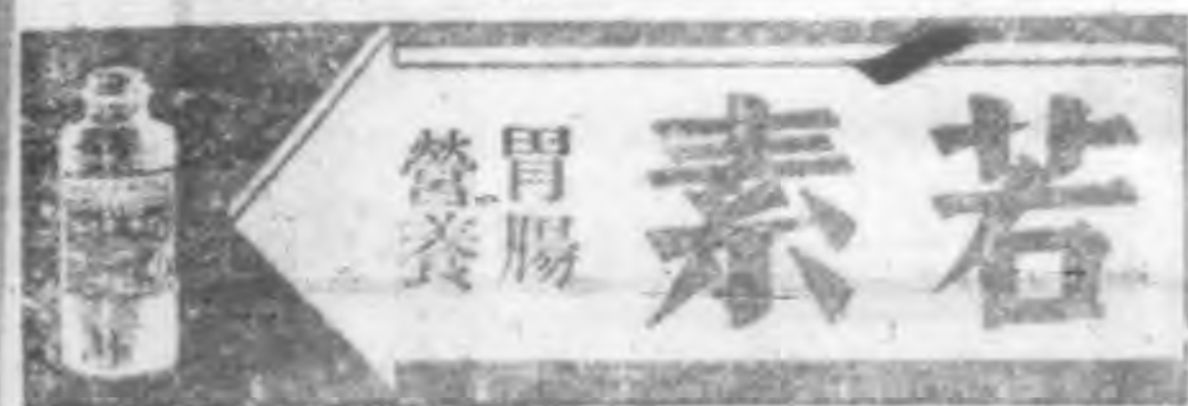 若素
胃腸
營養